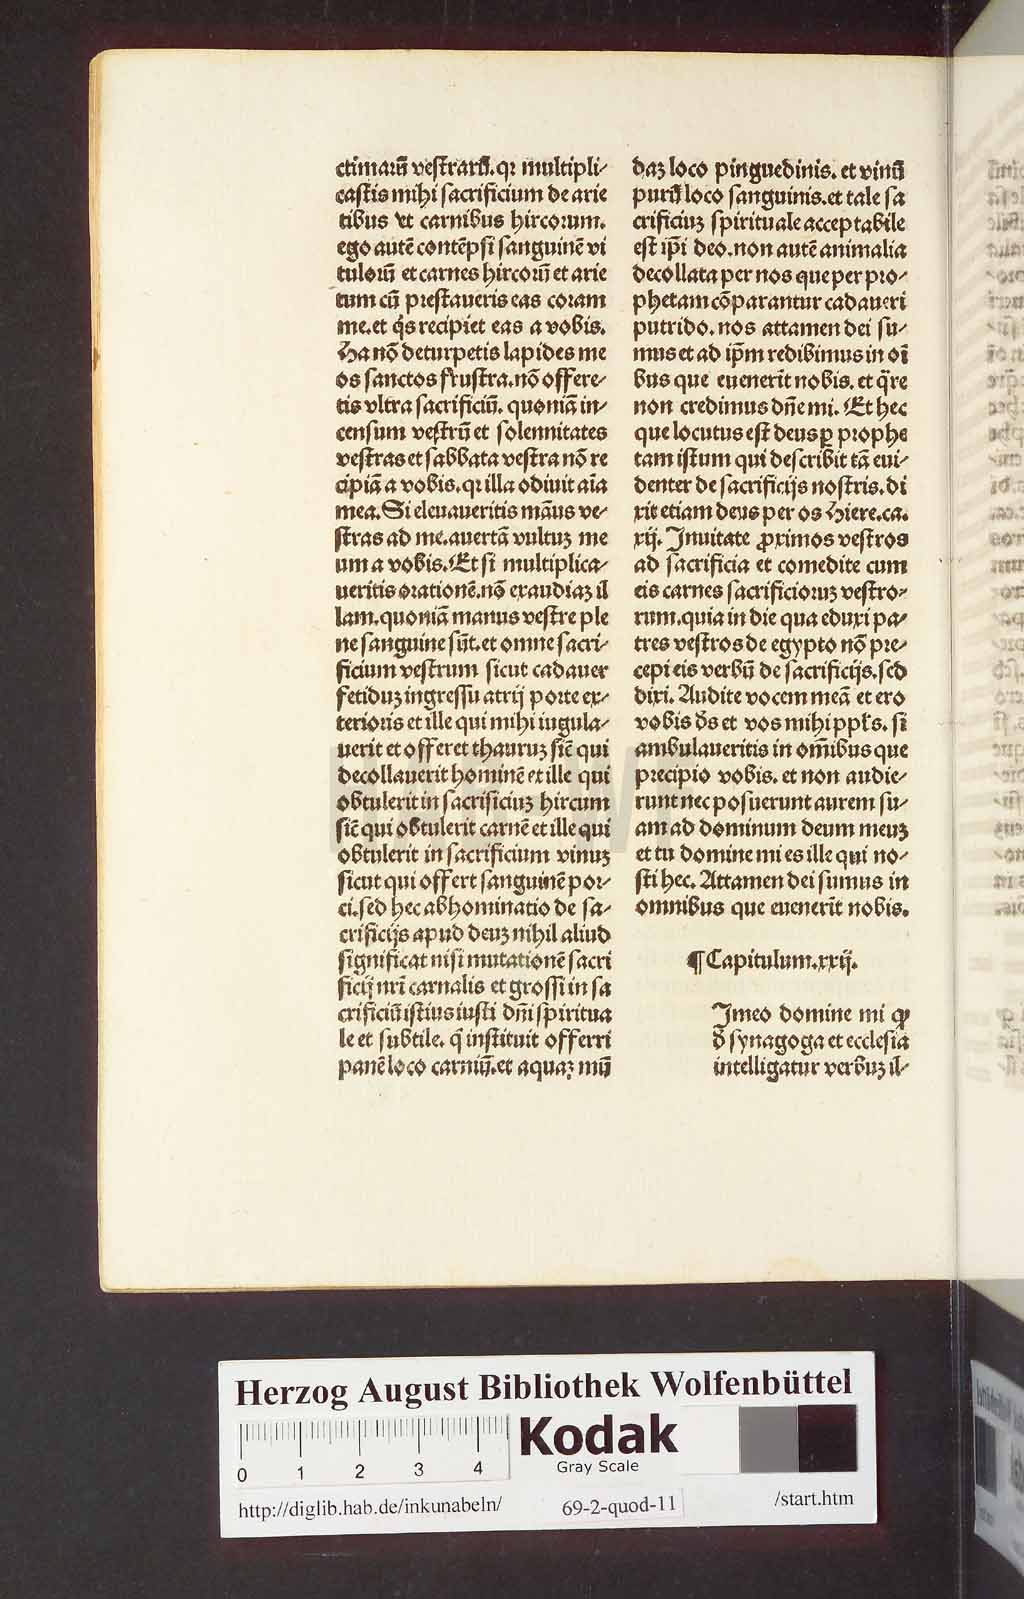 ctimarū vestrarū. qꝛ multipli-
castis mihi sacrificium de arie
tibus vt carnibus hircorum.
ego autē contēpsi sanguinē vi
tulorū et carnes hircorū et arie
tum cū prestaueris eas coram
me. et q̇s recipiet eas a vobis.
Ha nō deturpetis lapides me
os sanctos frustra. nō offere-
tis vltra sacrificiū. quoniā in-
censum vestrū et solennitates
vestras et sabbata vestra nō re
cipiā a vobis. qꝛ illa odiuit aīa
mea. Si eleuaueritis māus ve-
stras ad me. auertā vultuꝫ me
um a vobis. Et si multiplica-
ueritis orationē. nō exaudiaꝫ il
lam. quoniā manus vestre ple
ne sanguine sūt. et omne sacri-
ficium vestrum sicut cadauer
fetiduꝫ ingressu atrij porte ex-
terioris et ille qui mihi iugula-
uerit et offeret thauruꝫ siē qui
decollauerit hominē et ille qui
obtulerit in sacrificiuꝫ hircum
siē qui obtulerit carnē et ille qui
obtulerit in sacrificium vinuꝫ
sicut qui offert sanguinē por-
ci. sed hec abhominatio de sa-
crificijs apud deuꝫ nihil aliud
significat nisi mutationē sacri
ficij nr̄i carnalis et grossi in sa
crificiū istius iusti dn̄i spiritua
le et subtile. q̄ instituit offerri
panē loco carniū. et aquaꝫ mū
daꝫ loco pinguedinis. et vinū
purū loco sanguinis. et tale sa
crificiuꝫ spirituale acceptabile
est ip̄i deo. non autē animalia
decollata per nos que per pro-
phetam cōparantur cadaueri
putrido. nos attamen dei su-
mus et ad ip̄m redibimus in oī
bus que euenerīt nobis. et q̄re
non credimus dn̄e mi. Et hec
que locutus est deus ꝑ prophe
tam istum qui describit tā eui-
denter de sacrificijs nostris. di
xit etiam deus per os Hiere. ca.
xij. Inuitate ꝓximos vestros
ad sacrificia et comedite cum
eis carnes sacrificioruꝫ vestro-
rum. quia in die qua eduxi pa-
tres vestros de egypto nō pre-
cepi eis verbū de sacrificijs. sed
dixi. Audite vocem meā et ero
vobis d̄s et vos mihi ppl̄s. si
ambulaueritis in om̄ibus que
precipio vobis. et non audie-
runt nec posuerunt aurem su-
am ad dominum deum meuꝫ
et tu domine mi es ille qui no-
sti hec. Attamen dei sumus in
omnibus que euenerīt nobis.
¶ Capitulum. xxij.
Imeo domine mi ꝙ
d̄ synagoga et ecclesia
intelligatur verbuꝫ il-
HAB - WF
Herzog August Bibliothek Wolfenbüttel
0 1 2 3 4
Kodak
Gray Scale
http://diglib.hab.de/inkunabeln/ 69-2-quod-11 /start.htm